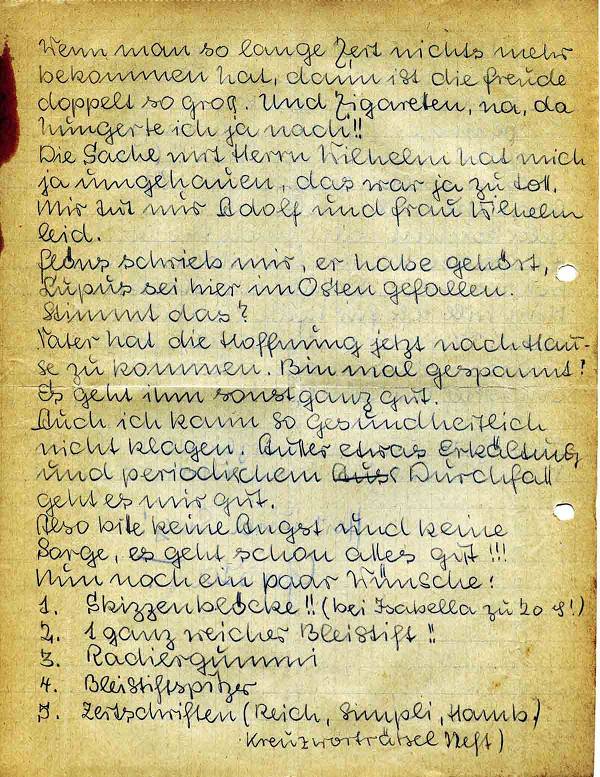 Wenn man so lange Zeit nichts mehr
bekommen hat, dann ist die Freude
doppelt so groß. Und Zigareten, na, da
hungerte ich ja nach!!
Die Sache mit Herrn Wilhelm hat mich
ja umgehauen, das war ja zu toll.
Mir tut nur Adolf und Frau Wilhelm
leid.
schrieb mir, er habe gehört,
Lupus sei hier im Osten gefallen.
Stimmt das?
Vater hat die Hoffnung jetzt nach Hau-
se zu kommen. Bin mal gespannt!
Es geht ihm sonst ganz gut.
Auch ich kann so gesundheitlich
nicht klagen. Außer etwas Erkältung
und periodischem Aus Durchfall
geht es mir gut.
Also bite keine Angst und keine
Sorge, es geht schon alles gut!!!
Nun noch ein paar Wünsche:
1. Skizzenblöcke!! (bei Isabella zu 20 !)
2. 1 ganz weicher Bleistift!!
3. Radiergummi
4. Bleistiftspitzer
5. Zeitschriften (Reich, Simpli, Hamb.)
Kreuzworträtsel Heft)